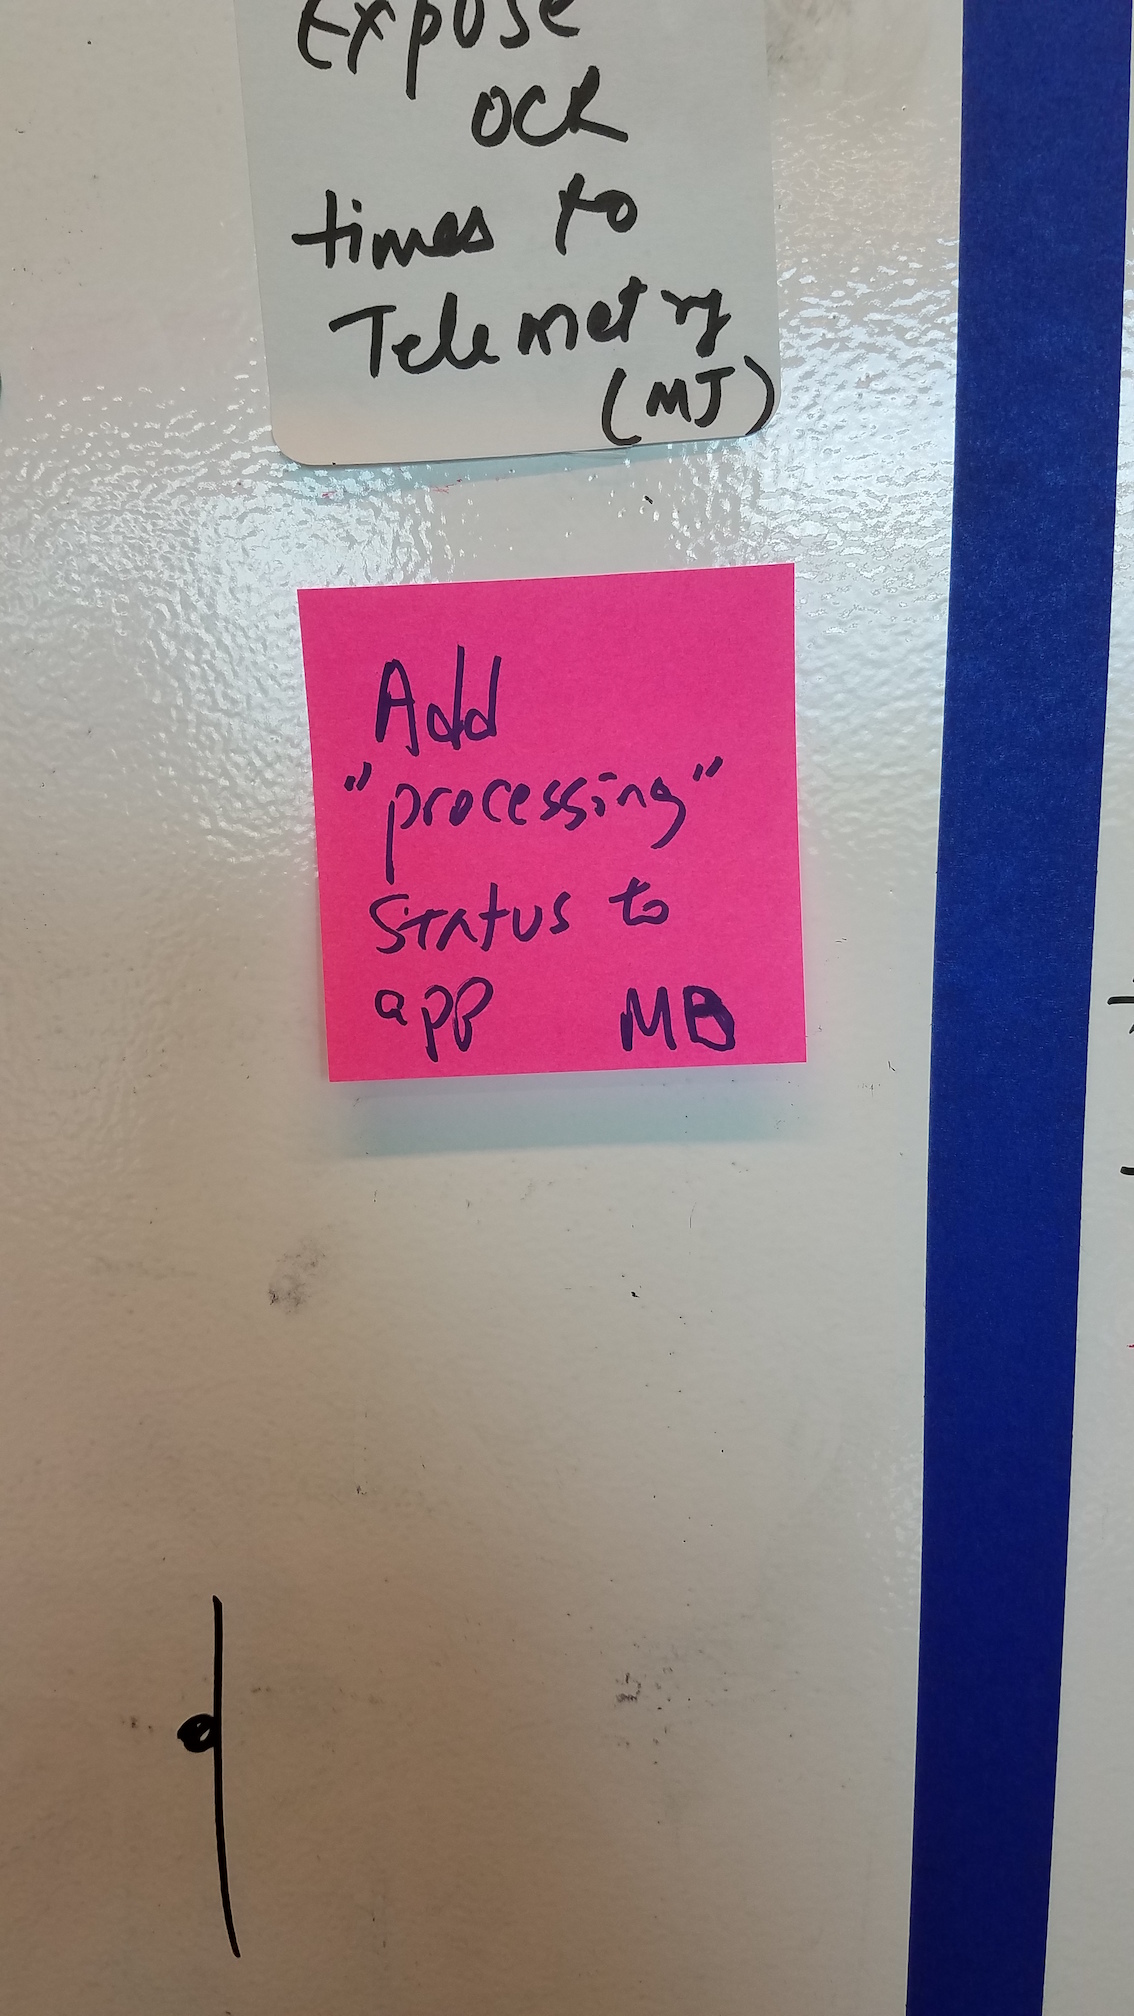 Expose
OCR
times to
Telemetry
(MJ)
Add
"processing"
Status to
app MB